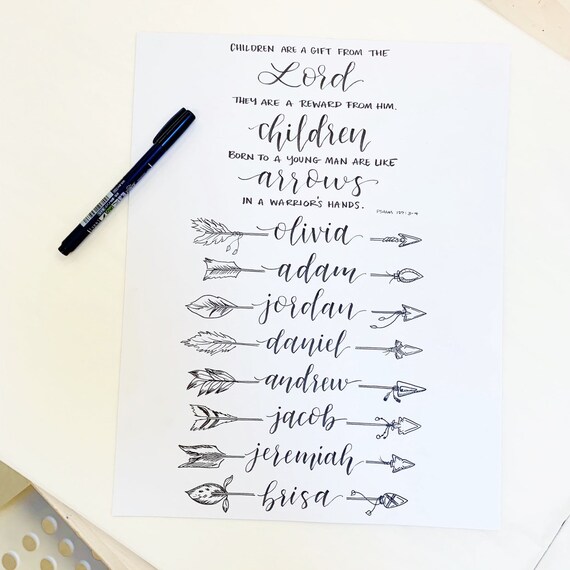 CHILDREN ARE A GIFT FROM THE
Lord
THEY ARE A REWARD FROM HIM.
children
BORN TO A YOUNG MAN ARE LIKE
arrows
IN A WARRIOR'S HANDS.
PSALM 127:3-4
olivia
adam
jordan
daniel
andrew
jacob
jeremiah
brisa